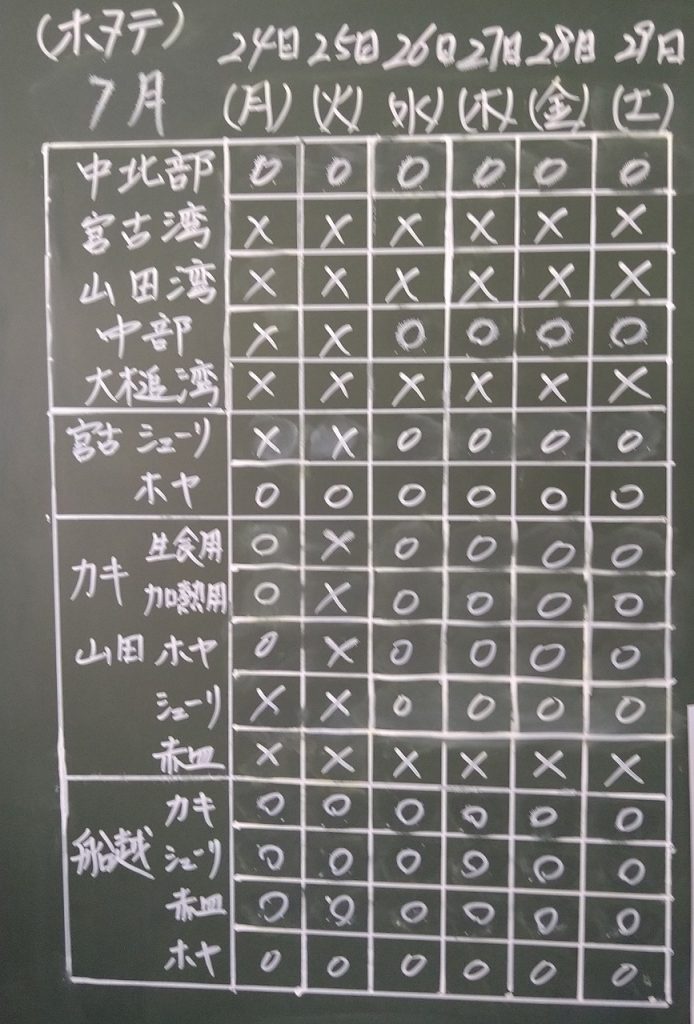 (ホタテ) 24日 25日 26日 27日 28日 29日
7月 (月) (火) (水) (木) (金) (土)
中北部 O O O O O O
宮古湾 X X X X X X
山田湾 X X X X X X
中部 X X O O O O
大槌湾 X X X X X X
宮古 シューリ X X O O O O
ホヤ O O O O O O
カキ 生食用 O X O O O O
加熱用 O X O O O O
山田 ホヤ O X O O O O
シューリ X X O O O O
赤皿 X X X X X X
カキ O O O O O O
船越 シューリ O O O O O O
赤皿 O O O O O O
ホヤ O O O O O O